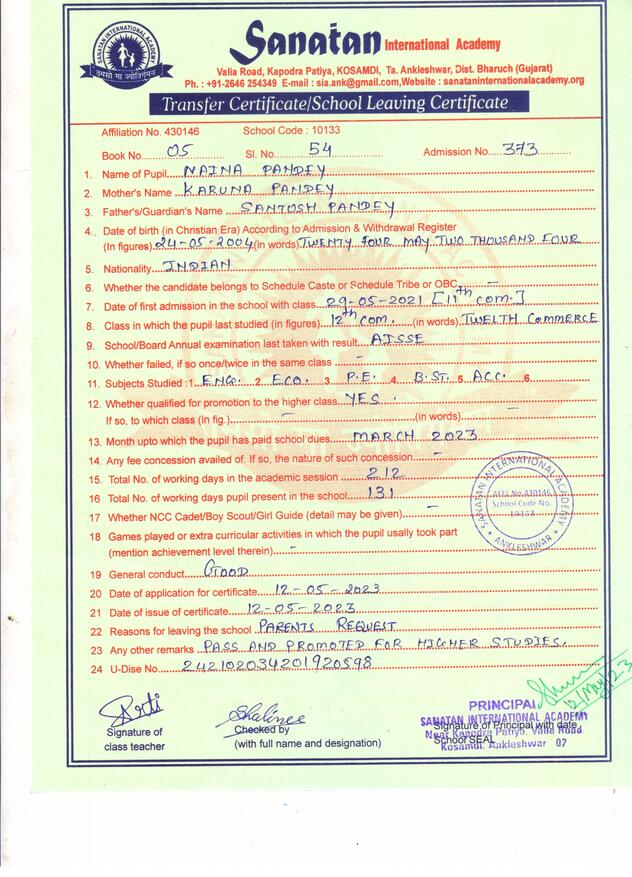 SANATAN INTERNATIONAL ACADEMY
तमसो मा ज्योतिर्गमय
Sanatan International Academy
Valia Road, Kapodra Patiya, KOSAMDI, Ta. Ankleshwar, Dist. Bharuch (Gujarat)
Ph. : +91-2646 254349 E-mail : sia.ank@gmail.com,Website : sanataninternationalacademy.org
Transfer Certificate/School Leaving Certificate
Affiliation No. 430146 School Code : 10133
Book No. 05 Sl. No. 54 Admission No. 373
1. Name of Pupil NAINA PANDEY
2. Mother's Name KARUNA PANDEY
3. Father's/Guardian's Name SANTOSH PANDEY
4. Date of birth (in Christian Era) According to Admission & Withdrawal Register
(In figures) 24-05-2004 (in words) TWENTY FOUR MAY TWO THOUSAND FOUR
5. Nationality INDIAN
6. Whether the candidate belongs to Schedule Caste or Schedule Tribe or OBC -
7. Date of first admission in the school with class 29-05-2021 [11th com.]
8. Class in which the pupil last studied (in figures) 12th com. (in words) TWELTH COMMERCE
9. School/Board Annual examination last taken with result AISSE
10. Whether failed, if so once/twice in the same class -
11. Subjects Studied :1. ENG. 2. ECO. 3. P.E. 4. B.ST. 5. ACC. 6.
12. Whether qualified for promotion to the higher class YES.
If so, to which class (in fig.) - (in words) -
13. Month upto which the pupil has paid school dues MARCH 2023
14. Any fee concession availed of. If so, the nature of such concession -
15. Total No. of working days in the academic session 212
16 Total No. of working days pupil present in the school 131
17 Whether NCC Cadet/Boy Scout/Girl Guide (detail may be given) -
18 Games played or extra curricular activities in which the pupil usally took part
(mention achievement level therein) -
SANATAN INTERNATIONAL ACADEMY
AFFI.No.430146
School Code No.
10133
ANKLESHWAR
19 General conduct GOOD
20 Date of application for certificate 12-05-2023
21 Date of issue of certificate 12-05-2023
22 Reasons for leaving the school PARENTS REQUEST
23 Any other remarks PASS AND PROMOTED FOR HIGHER STUDIES.
24 U-Dise No. 242102034201920598
12/May/23
Arti
Shalinee
Signature of
class teacher
Checked by
(with full name and designation)
PRINCIPAL
SANATAN INTERNATIONAL ACADEMY
Signature of Principal with date
Near Kapodra Patiya, Valia Road
School SEAL
Kosamdi, Ankleshwar 02